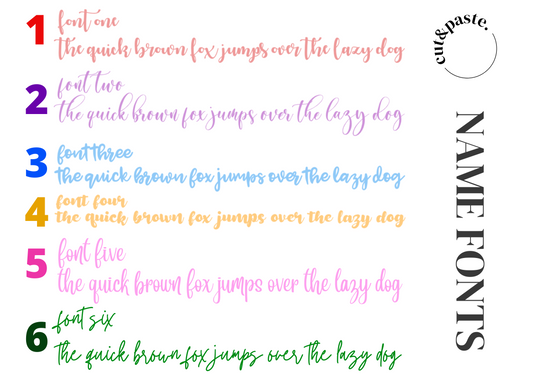 1
font one
the quick brown fox jumps over the lazy dog
2
font two
the quick brown fox jumps over the lazy dog
3
font three
the quick brown fox jumps over the lazy dog
4
font four
the quick brown fox jumps over the lazy dog
5
font five
the quick brown fox jumps over the lazy dog
6
font six
the quick brown fox jumps over the lazy dog
cut&paste.
NAME FONTS